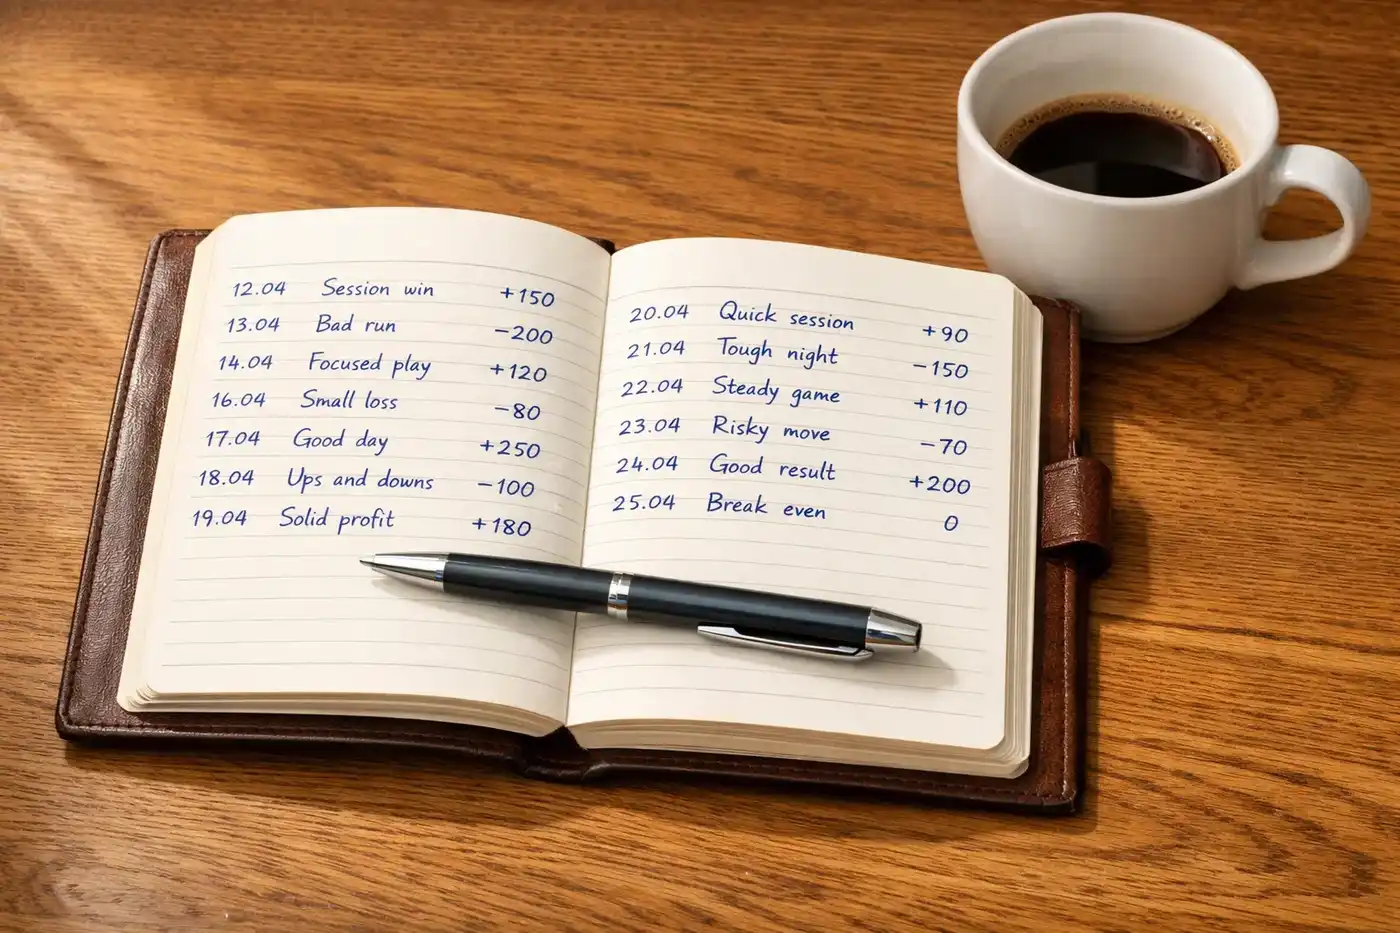 12.04 Session win +150
13.04 Bad run −200
14.04 Focused play +120
16.04 Small loss −80
17.04 Good day +250
18.04 Ups and downs −100
19.04 Solid profit +180
20.04 Quick session +90
21.04 Tough night −150
22.04 Steady game +110
23.04 Risky move −70
24.04 Good result +200
25.04 Break even 0